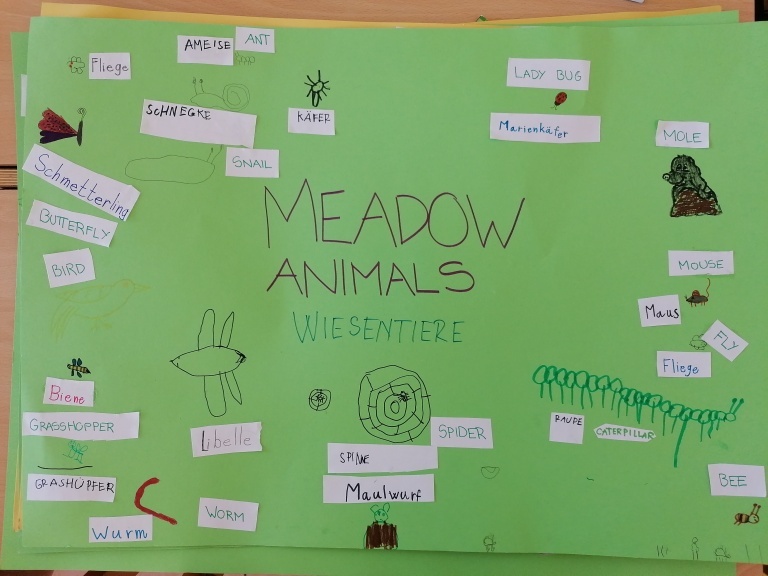 AMEISE
ANT
Fliege
LADY BUG
SCHNECKE
KÄFER
Marienkäfer
MOLE
SNAIL
Schmetterling
BUTTERFLY
MEADOW
ANIMALS
WIESENTIERE
BIRD
MOUSE
Maus
FLY
Fliege
Biene
GRASSHOPPER
Libelle
SPIDER
RAUPE
CATERPILLAR
SPINE
GRASHÜPFER
Maulwurf
BEE
Wurm
WORM